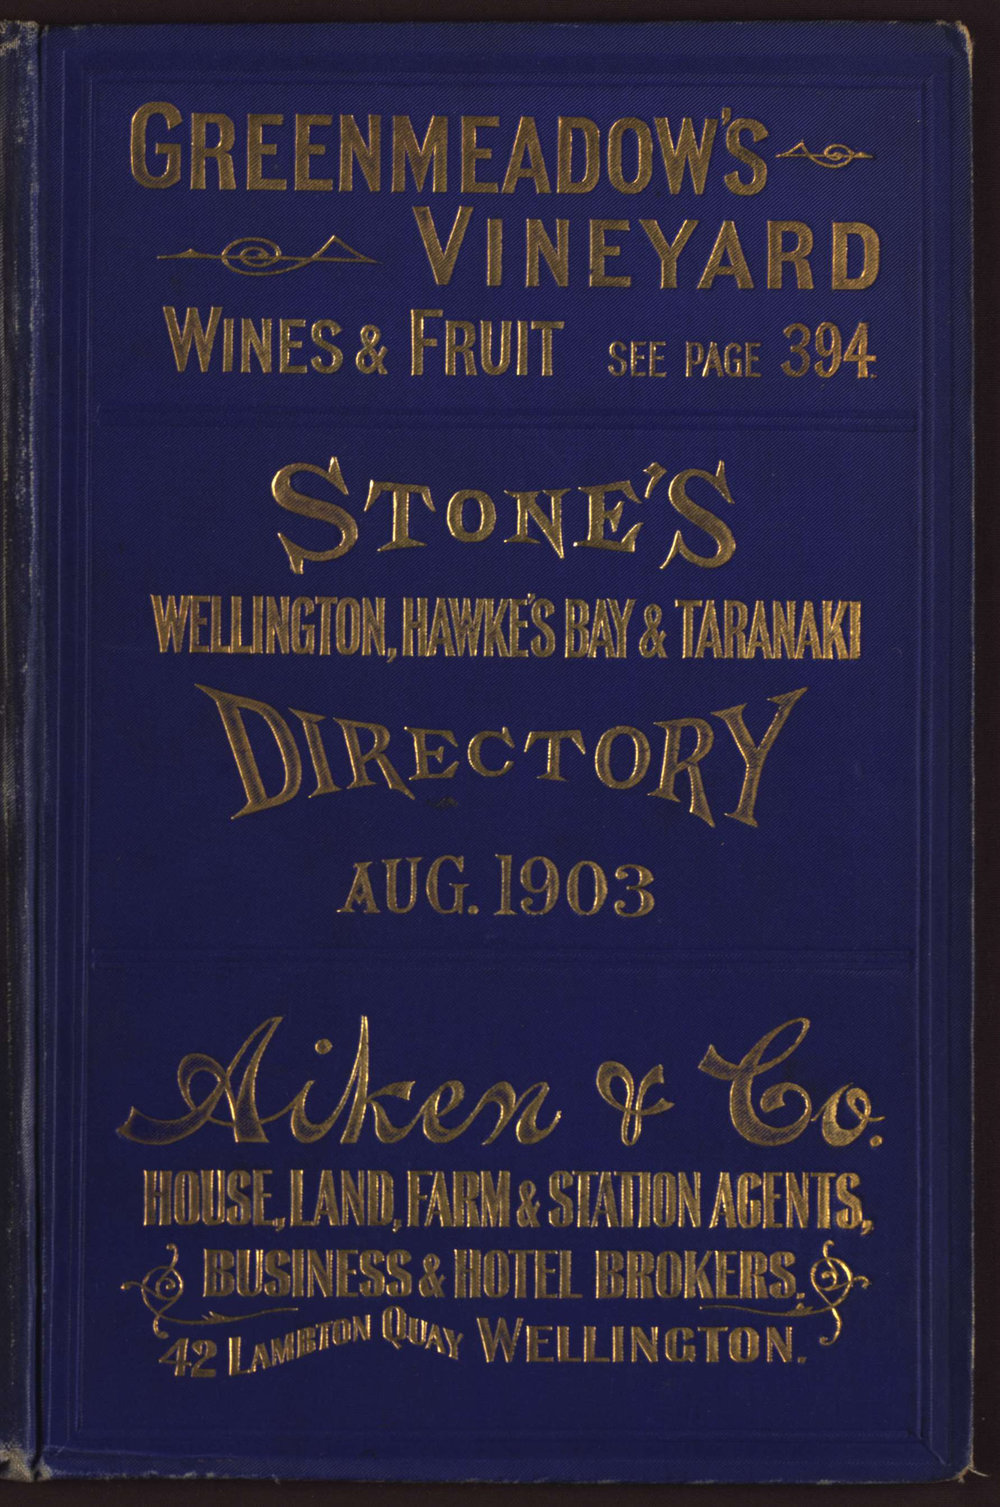 GREENMEADOW'S
VINEYARD
WINES & FRUIT SEE PAGE 394.
STONE'S
WELLINGTON, HAWKE'S BAY & TARANAKI
DIRECTORY
AUG. 1903
Aiken & Co.
HOUSE, LAND, FARM & STATION AGENTS,
BUSINESS & HOTEL BROKERS.
42 LAMBTON QUAY WELLINGTON.